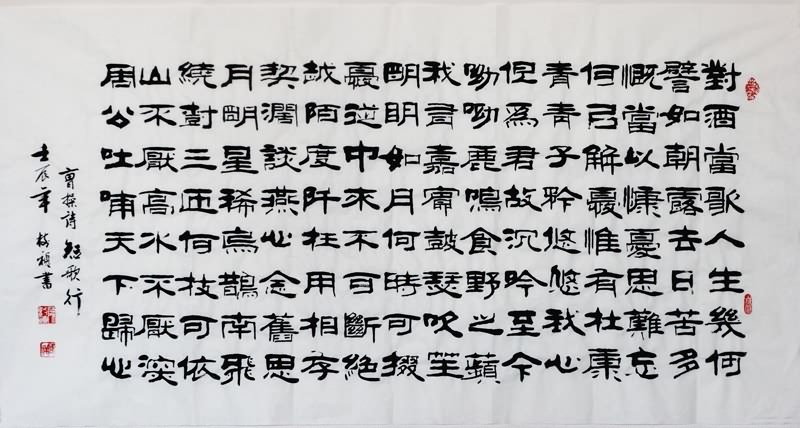 對酒當歌人生幾何
譬如朝露去日苦多
慨當以慷憂思難忘
何㠯解憂惟有杜康
青青子衿悠悠我心
但爲君故沉吟至今
呦呦鹿鳴食野之蘋
我有嘉賓鼓瑟吹笙
明明如月何時可掇
憂從中來不可斷絕
越陌度阡枉用相存
契濶談燕心念舊思
月明星稀烏鵲南飛
繞樹三匝何枝可依
山不厭高水不厭深
周公吐哺天下歸心
曹操詩短歌行
壬辰年書